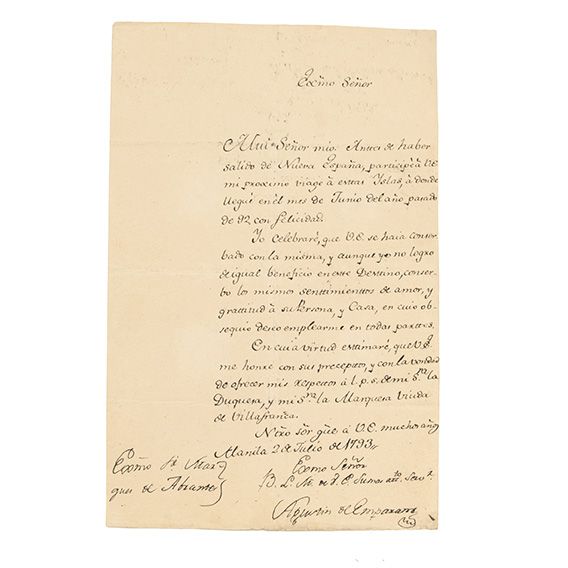 Exmo Señor
Mui Señor mio. Antes de haber
salido de Nueva España, participè à V.E.
mi proximo viage à estas Islas, à donde
llegué en èl mes de Junio del año pasado
de 92 con felicidad.
Yo celebraré, que V.E. se haia conser
bado con la misma, y aunque yo no logro
de igual beneficio en este Destino, conser
bo los mismos senttimientos de amor, y
grattitud à su Persona, y Casa, en cuio ob-
sequio deseo emplearme en todas parttes.
En cuia virtud estimaré, que V.E.
me honre con sus preceptos, y con la vondad
de ofrecer mis respettos à l. p. s. de mi Sra la
Duquesa, y mi Sra la Marquesa Viuda
de Villafranca.
Ntro Sôr gûe à V.E. muchos años
Manila 2 de Julio de 1793.
Exmo Señor
B. L. M. de V. E. su mas atto Servr
Exmo Sr Mar
ques de Abrantes
Agustin de Emparan